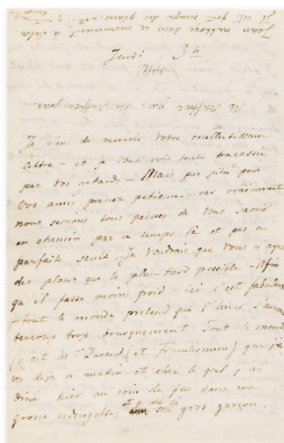 Jeudi 3 h
Je viens de recevoir votre excellentissime
lettre – et je vous vois toute tracassée
par vos retards – Mais par pitié pour
vos amis prenez patience – car vraiment
nous serions tous peinés de vous savoir
en chemin par ce temps là et pas en
parfaite santé. Je voudrais que vous n'ayez
des places que le plus tard possible – Afin
qu'il fasse moins froid – ici c'est fabuleux
– tout le monde pretend que l'hiver s'annonce
beaucoup trop brusquement. Tout le monde
(c'est Mr Durand et Franchomme) que j'ai
vu déjà ce matin et chez le quel j'ai
diné hier au coin du feu dans ma
grosse redingotte, et à côté de son gros garçon.